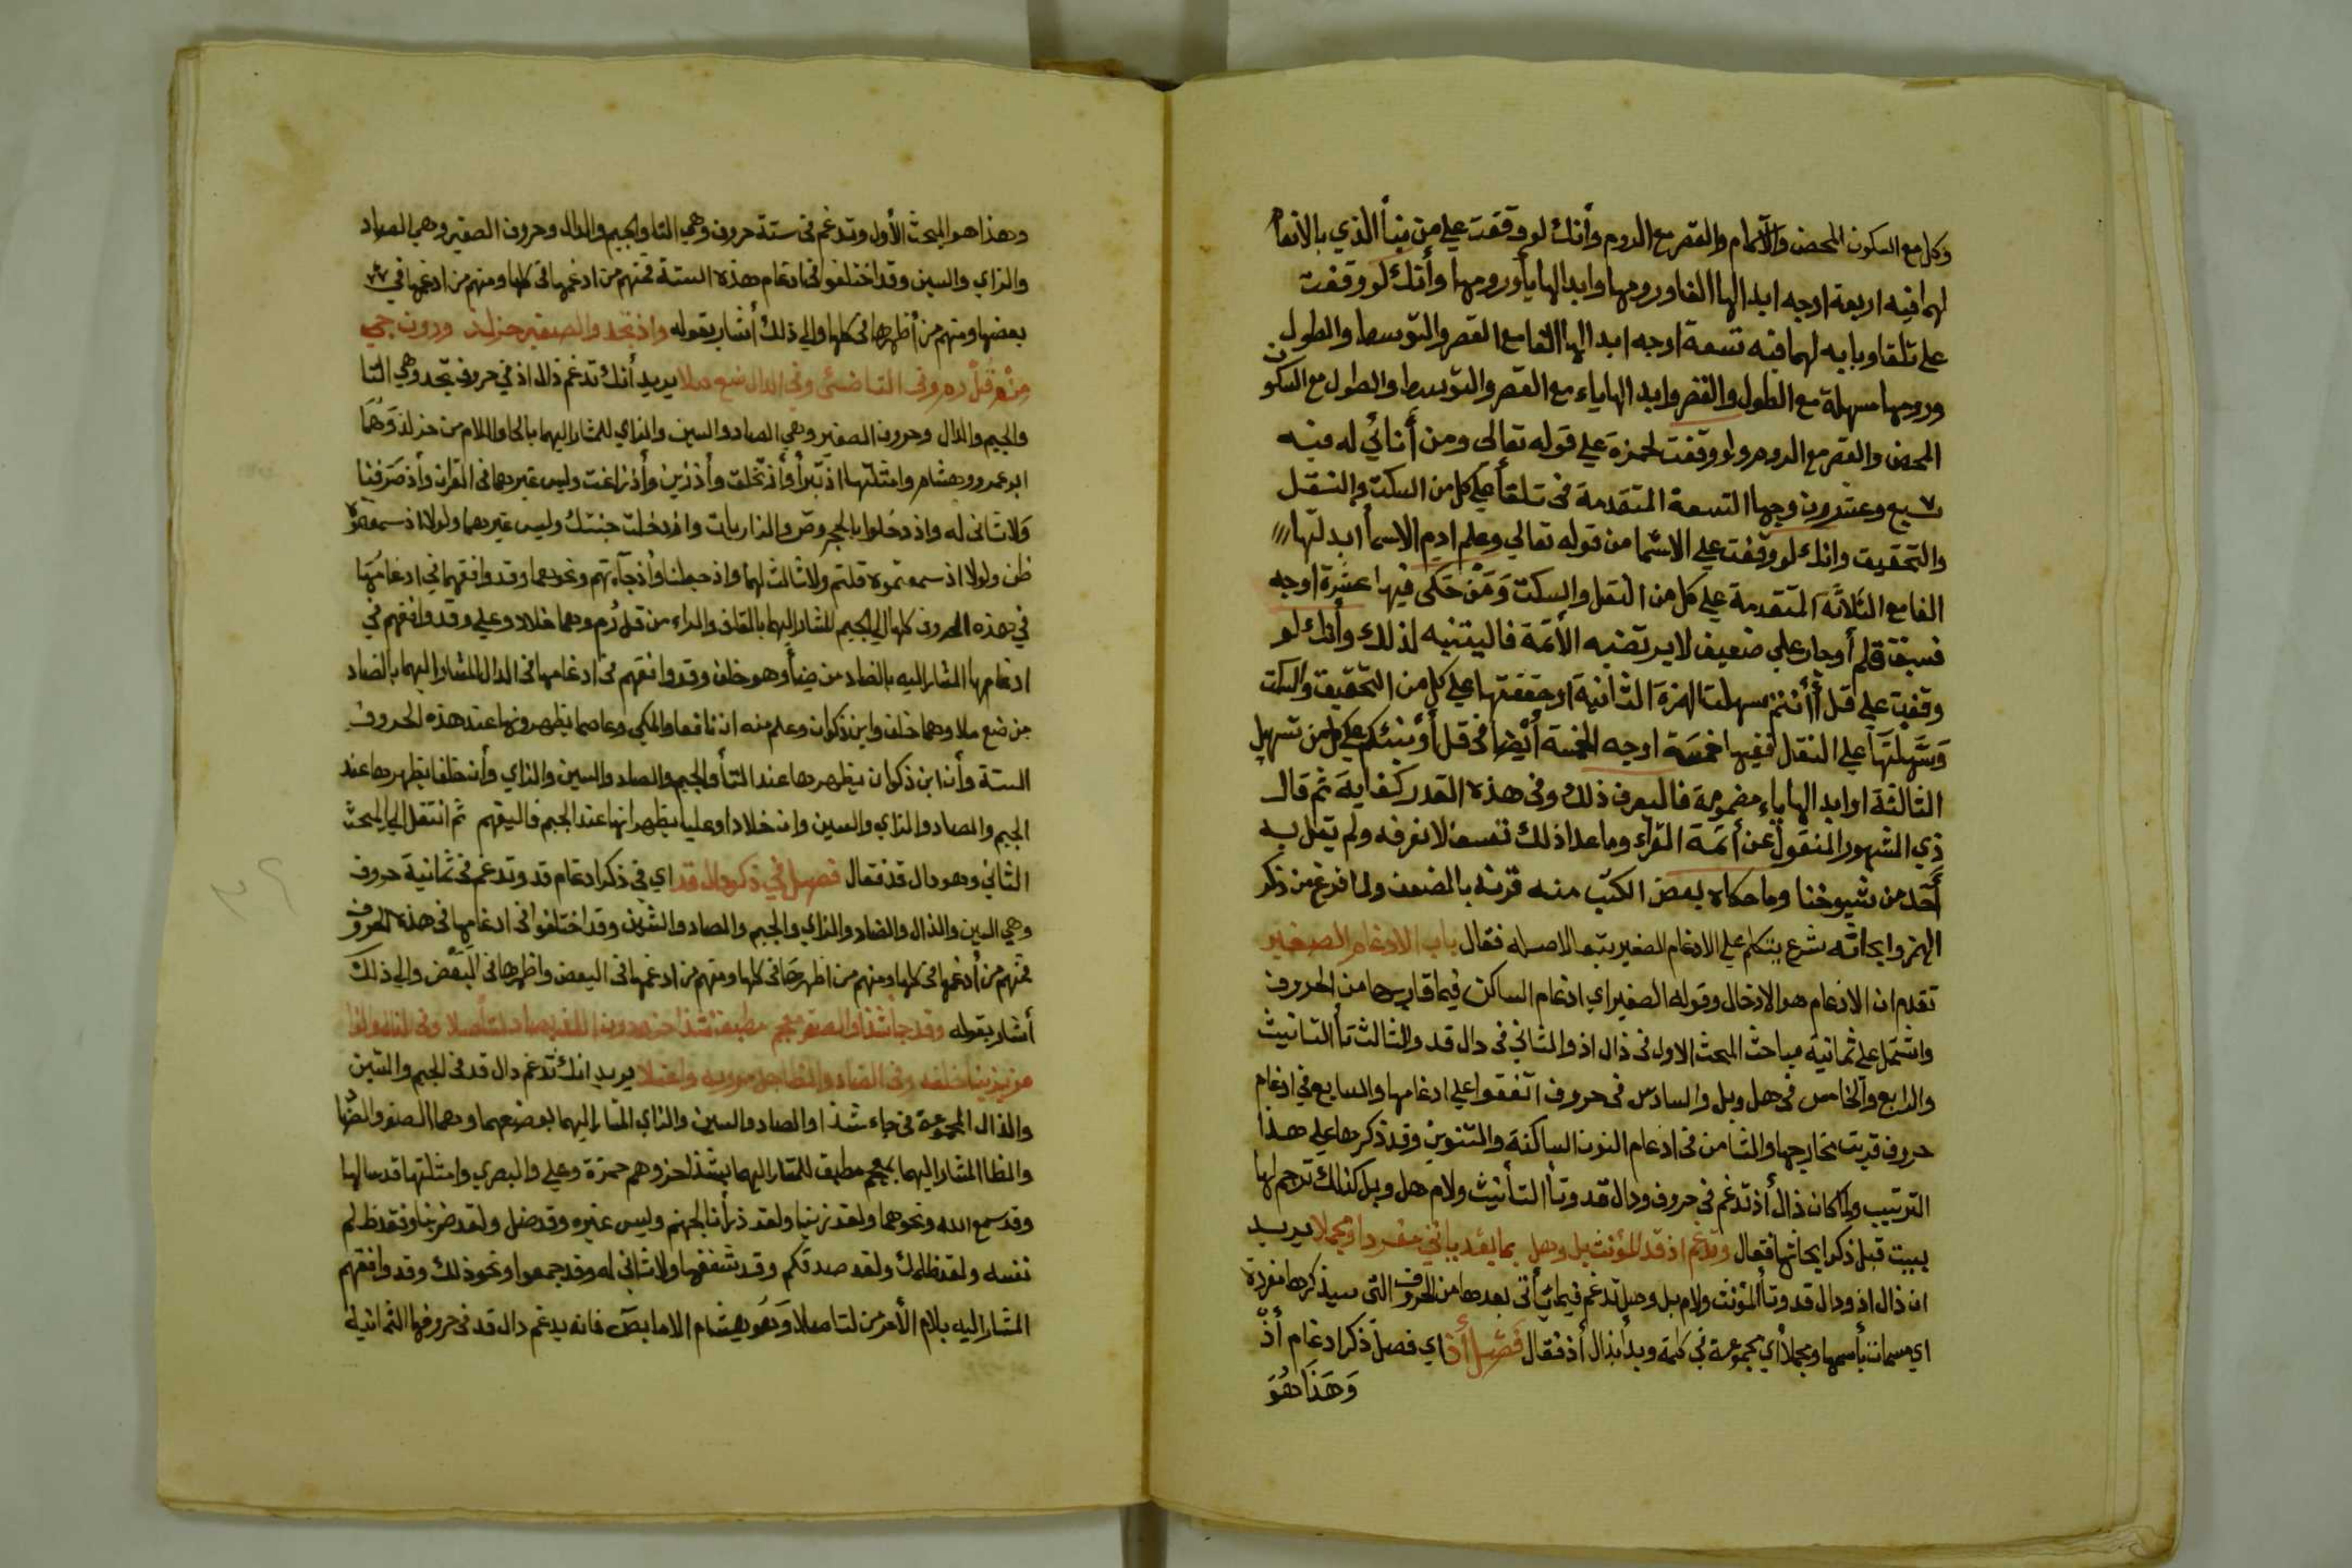 وكل مع السكون المحض والاشمام والقصر مع الروم وأنك لو وقفت علي من نبأ الذي بالانعام
لهما فيه اربعة اوجه ابدالها الفا ورومها وابدالها يأ ورومها وأنك لو وقفت
علي تلقاو بابه لهما فيه تسعة اوجه ابدالها الفا مع القصر والتوسط والطول
ورومها مسهلة مع الطول والقصر وابدالها ياء مع القصر والتوسط والطول مع السكون
المحض والقصر مع الروم ولو وقفت لحمزة علي قوله تعالي ومن أنائي له فيه
سبع وعشرون وجها التسعة المتقدمة في تلقأ علي كل من السكت والنقل
والتحقيق وانك لو وقفت علي الاسما من قوله تعالي وعلم ادم الاسمأ ابدلتها
الفا مع الثلاثة المتقدمة علي كل من النقل والسكت وَمَنْ حَكَى فيها عشرة اوجه
فسبقة قلم أو جار علي ضعيف لا يرتضيه الأئمة فاليتنبه لذلك وأنك لو
وقفت علي قل أأنتم سهلت الهمزة الثانية او حققتها علي كل من التحقيق والسكت
وَسَهَّلْتَهَا علي النقل ففيها خمسة اوجه الخمسة أيضا في قل أؤنبئكم علي كل من تسهيل
الثالثة او ابدالها ياء مضمومة فاليعرف ذلك وفي هذه القدر كفاية ثم قال
ذي المشهور المنقول عن أئمة القراء وما عدا ذلك تعسف لا نعرفه ولم يقل به
أَحَد من شيوخنا وما حكاه بعض الكتب منه قرنه بالضعف ولما فرغ من ذكر
الهمز وابحاثه شرع يتكلم علي الادغام الصغير يتبعا لاصله فقال باب الادغام الصغير
تقدم ان الادغام هو الادخال وقوله الصغير اي ادغام الساكن فيما قاربها من الحروف
واشتمل علي ثمانية مباحث المبحث الاول في ذال اذ والثاني في دال قد والثالث تأ التانيث
والرابع والخامس في هل وبل والسادس في حروف اتفقوا علي ادغامها والسابع في ادغام
حروف قربت مخارجها والثامن في ادغام النون الساكنة والتنوين وقد ذكرها علي هذا
الترتيب ولما كان ذال أذ تدغم في حروف ودال قد وتأ التأنيث ولام هل وبل كذلك ترجم لها
ببيت قبل ذكر ابحاثها فقال وتدغم اذ قد المؤنث بل وهل بما بعد ياتي مفردا ومجملا يريد
ان ذال اذ ودال قد وتأ المؤنث ولام بل وهل تدغم فيما يأتي بعدها من الحروف التي سيذكرها مفردة
اي مسمات بأسمها ومجملا أي مجموعة في كلمة وبدأ بذال أذ فقال فَصْل أذ اي فصل ذكر ادغام أذ
وَهَذَا هُوَ
وهذا هو المبحث الأول وتدغم في ستة حروف وهي التا والجيم والدال وحروف الصفير وهي الصاد
والزاي والسين وقد اختلفوا في ادغام هذه الستة فمنهم من ادغمها في كلها ومنهم من ادغمها في
بعضها ومنهم من أظهرها في كلها والي ذلك أشار بقوله واذ تجد والصفير حز لذ ودون جيم
قل رم وفي يريد أنك تدغم ذال اذ في حروف تجد وهي التا
والجيم والدال وحروف الصفير وهي الصاد والسين والزاي للمشار اليهما بالحا واللام من حز لذ وَهُمَا
ابو عمرو وهشام وامثلتها اذ تبرأ وأذ تخلق وأذ زين وأذ زاغت وليس غيرهما في القران وأذ صَرفنا
وَلا ثاني له واذ دخلوا بالحجر وص والذاريات واذ دخلت جنتك وليس غيرهما ولولا اذ سمعتموه
ظن ولولا اذ سمعتموه قلتم ولا ثالث لهما واذ جعلنا وأذ جآءتهم ونحوهما وقد وافقهما في ادغامُهَا
في هذه الحروف كلها الي الجيم للمشار اليهما بالقاف والراء من قل رُم وهما خلاد وعلي وقد وافقهم في
ادغامها المشار اليه بالضاد من ضيأ وهو خلف وقد وافقهم في ادغامها في الدال المشار اليهما بالضاد
من ضع ملا وهما خلف وابن ذكوان وعلم منه ان نافعا والمكي وعاصما يظهرونها عند هذه الحروف
الستة وأن ابن ذكوان يظهرها عند التأ والجيم والصاد والسين والزاي وأن خلفا يظهرها عند
الجيم والصاد والزاي والسين وان خلادا وعليا يظهرانها عند الجيم فاليفهم ثم انتقل الي المبحث
الثاني وهو دال قد فقال فصل في ذكر دال قد اي في ذكر ادغام قد وتدغم في ثمانية حروف
وهي السين والذال والضاد والزاي والجيم والصاد والشين وقد اختلفوا في ادغامها في هذه الحروف
فمنهم من أدغمها في كلها ومنهم من اظهرها في كلها ومنهم من ادغمها في البعض واظهرها في البَعْض والي ذلك
أشار بقوله وقد
يريد انك تدغم دال قد في الجيم والشين
والذال المجموعة في جاء شذا والصاد والسين والزاي المشار اليهما بعضهما وهما الصفر والضاد
والظا المشار اليهما بمعجم مطبق للمشار اليهما بشذا حز وهم حمزة وعلي والبصري وامثلتها قد سالها
وقد سمع الله ونحوهما ولقد زينا ولقد ذرأنا لجهنم وليس غيره وقد ضل ولقد ضربنا وفقد ظلم
نفسه ولقد ظلمك ولقد صدقكم وقد شغفها ولا ثاني له وقد جمعوا ونحو ذلك وقد وافقهم
المشار اليه بلام الأمر من لتاصلا وَهُو هشام الا ما بص فانه يدغم دال قد في حروفها الثمانية